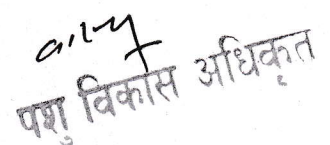 पशु विकास अधिकृत